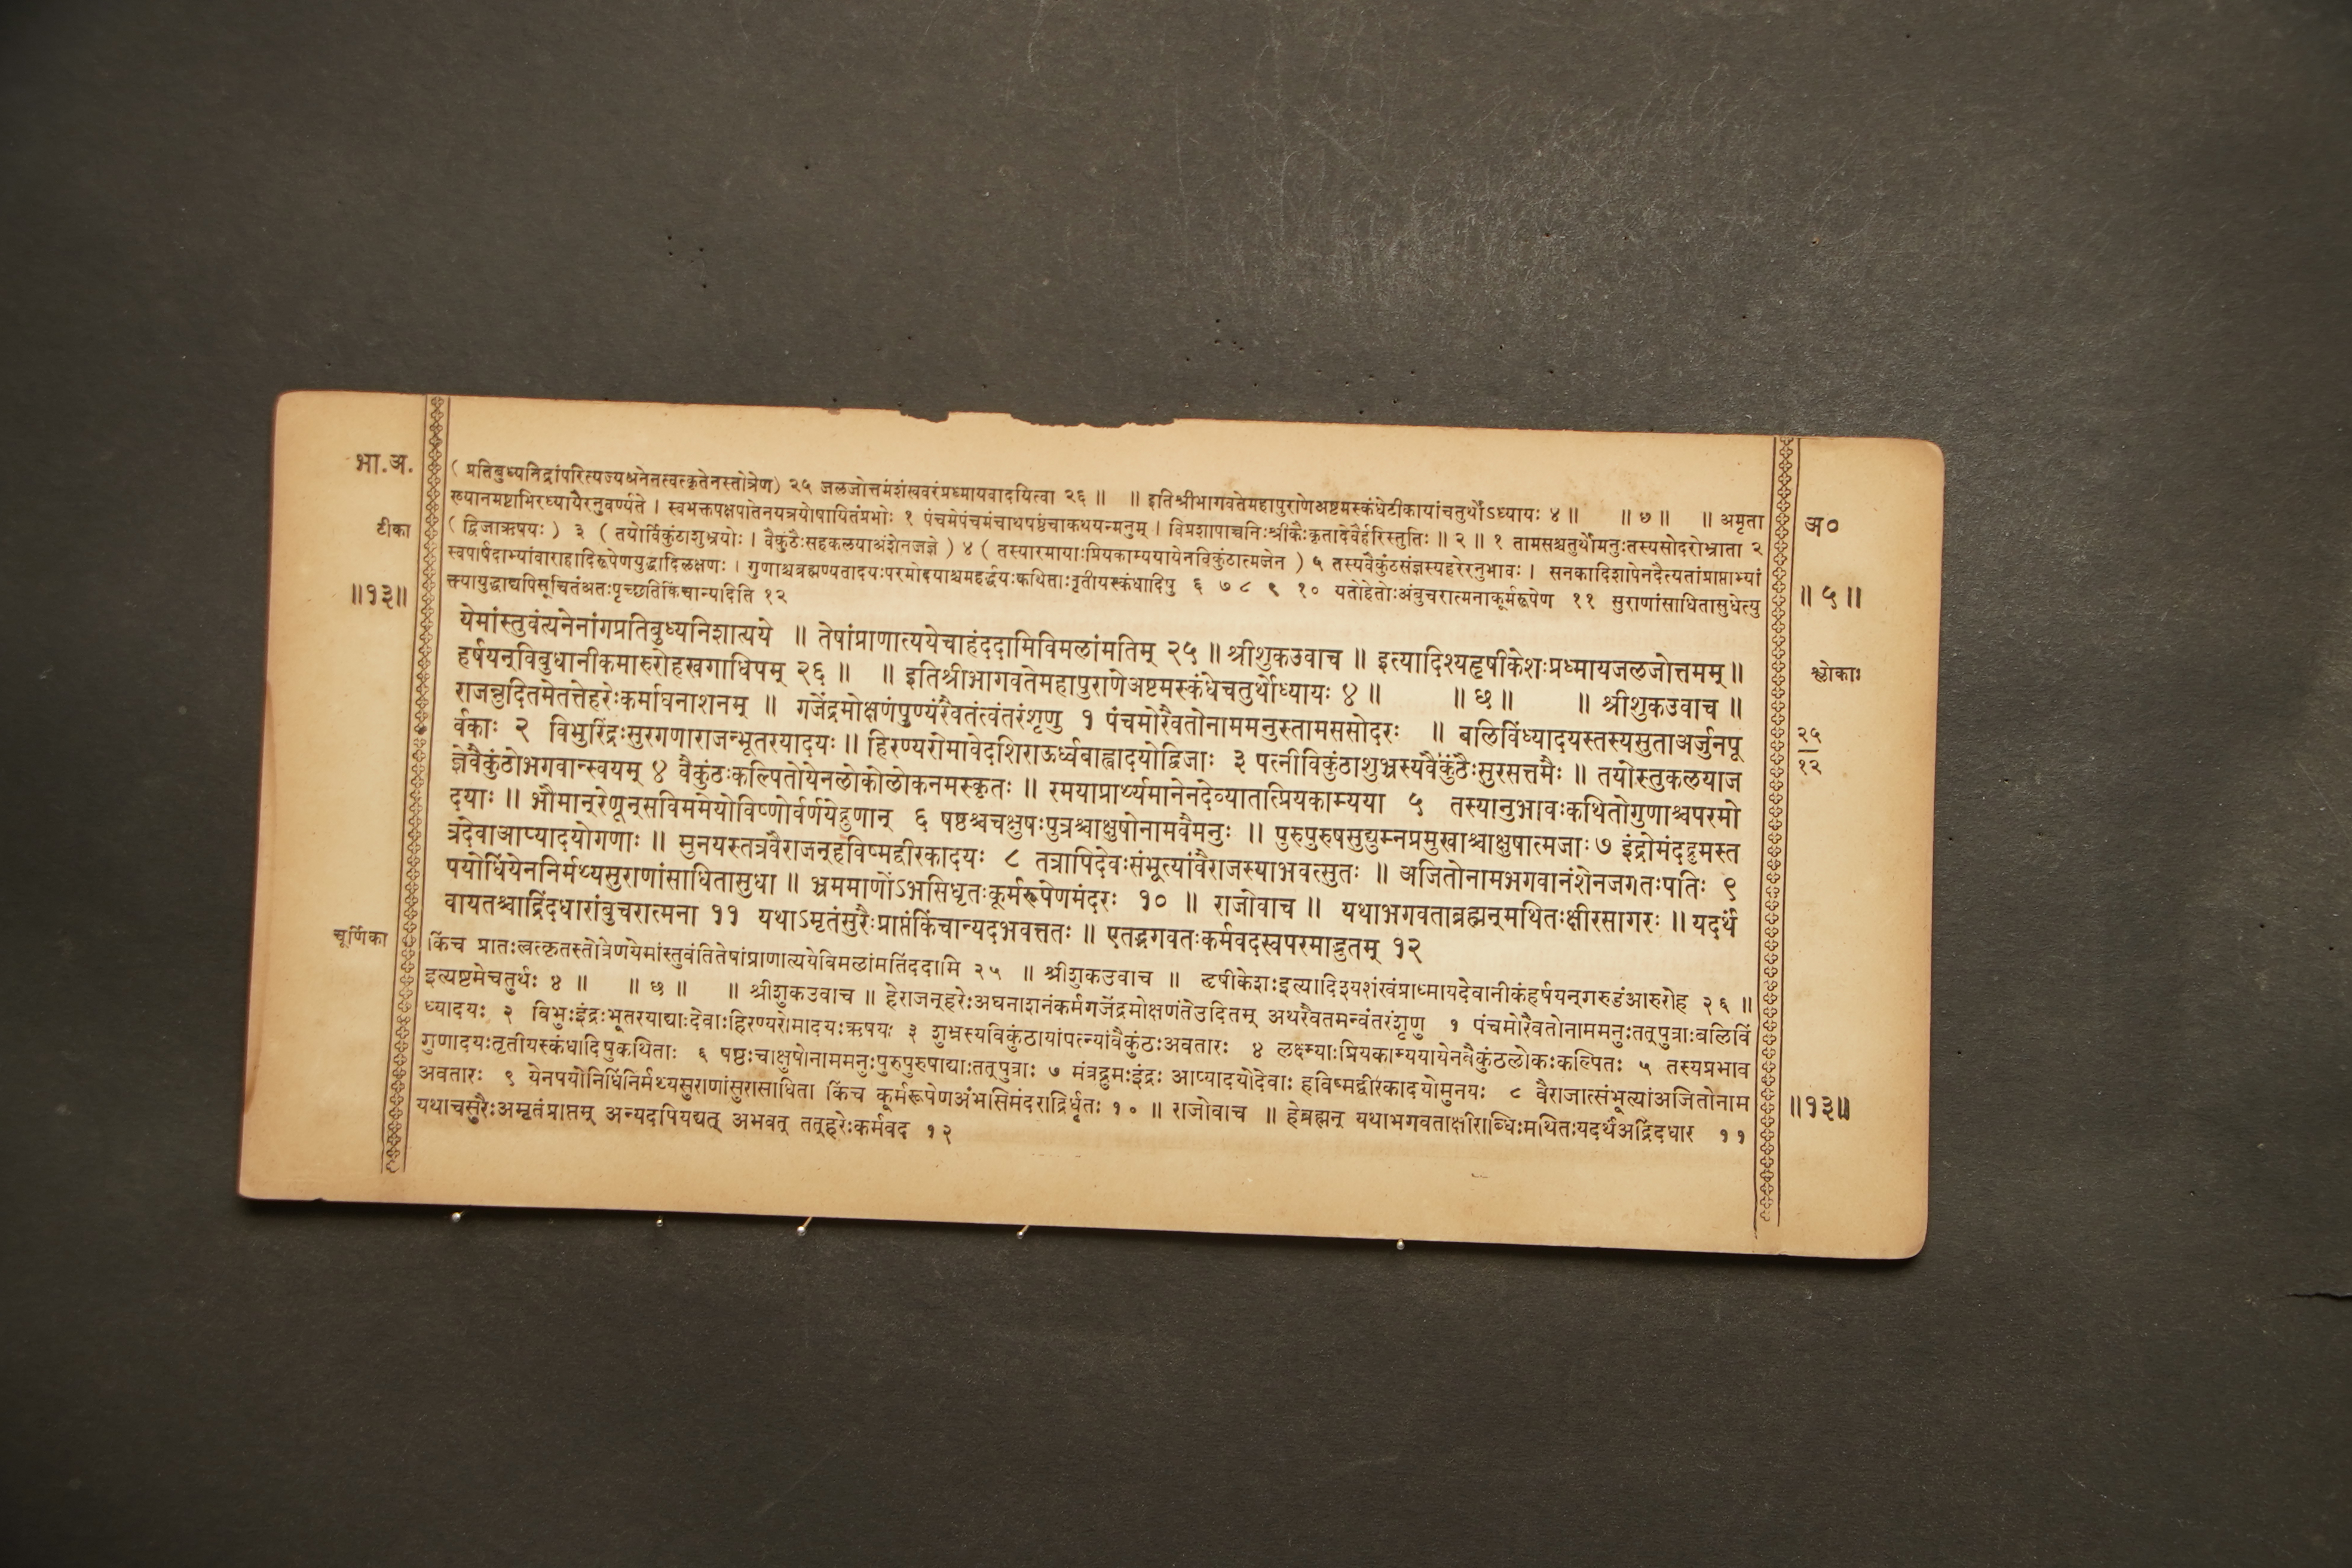 भा.अ.
टीका
॥१३॥
(प्रतिबुध्यनिद्रांपरित्यज्यअनेनत्वत्कृतेनस्तोत्रेण) २५ जलजोत्तमंशंखवरंप्रध्मायवादयित्वा २६ ॥ ॥ इतिश्रीभागवतेमहापुराणेअष्टमस्कंधेटीकायांचतुर्थोऽध्यायः ४ ॥ ॥ ७ ॥ ॥ अमृता
ख्यानमष्टाभिरध्यायैरनुवर्ण्यते । स्वभक्तपक्षपातेनयत्रयोषायितंप्रभोः १ पंचमेपंचमंचाथषष्ठंचाकथयन्मनुम् । विप्रशापाच्चनिःश्रीकैःकृतादेवैर्हरिस्तुतिः ॥ २ ॥ १ तामसश्चतुर्थोमनुःतस्यसोदरोभ्राता २
(द्विजाऋषयः) ३ (तयोर्विकुंठाशुभ्रयोः । वैकुंठैःसहकलयाअंशेनजज्ञे) ४ (तस्यारमायाःप्रियकाम्ययायेनविकुंठात्मजेन) ५ तस्यवैकुंठसंज्ञस्यहरेरनुभावः । सनकादिशापेनदैत्यतांप्राप्ताभ्यां
स्वपार्षदाभ्यांवाराहादिरूपेणयुद्धादिलक्षणः । गुणाश्चब्रह्मण्यतादयःपरमोदयाश्चमहर्द्धयःकथिताःतृतीयस्कंधादिषु ६ ७ ८ ९ १० यतोहेतोःअंबुचरात्मनाकूर्मरूपेण ११ सुराणांसाधितासुधेत्यु
क्त्यायुद्धाद्यपिसूचितंअतःपृच्छतिकिंचान्यदिति १२
येमांस्तुवंत्यनेनांगप्रतिबुध्यनिशात्यये ॥ तेषांप्राणात्ययेचाहंददामिविमलांमतिम् २५ ॥ श्रीशुकउवाच ॥ इत्यादिश्यहृषीकेशःप्रध्मायजलजोत्तमम् ॥
हर्षयन्विबुधानीकमारुरोहखगाधिपम् २६ ॥ ॥ इतिश्रीभागवतेमहापुराणेअष्टमस्कंधेचतुर्थोध्यायः ४ ॥ ॥ छ ॥ ॥ श्रीशुकउवाच ॥
राजन्नुदितमेतत्तेहरेःकर्माघनाशनम् ॥ गजेंद्रमोक्षणंपुण्यंरैवतंत्वंतरंशृणु १ पंचमोरैवतोनाममनुस्तामससोदरः ॥ बलिविंध्यादयस्तस्यसुताअर्जुनपू
र्वकाः २ विभुरिंद्रःसुरगणाराजन्भूतरयादयः ॥ हिरण्यरोमावेदशिराऊर्ध्वबाह्वादयोद्विजाः ३ पत्नीविकुंठाशुभ्रस्यवैकुंठैःसुरसत्तमैः ॥ तयोस्तुकलयाज
ज्ञेवैकुंठोभगवान्स्वयम् ४ वैकुंठःकल्पितोयेनलोकोलोकनमस्कृतः ॥ रमयाप्रार्थ्यमानेनदेव्यातात्प्रियकाम्यया ५ तस्यानुभावःकथितोगुणाश्चपरमो
दयाः ॥ भौमान्रेणून्सविममेयोविष्णोर्वर्णयेद्गुणान् ६ षष्ठश्चचक्षुषःपुत्रश्चाक्षुषोनामवैमनुः ॥ पुरुपुरुषसुद्युम्नप्रमुखाश्चाक्षुषात्मजाः ७ इंद्रोमंददृमस्त
त्रदेवाआप्यादयोगणाः ॥ मुनयस्तत्रवैराजन्हविष्मद्वीरकादयः ८ तत्रापिदेवःसंभूत्यांवैराजस्याभवत्सुतः ॥ अजितोनामभगवानंशेनजगतःपतिः ९
पयोधिंयेननिर्मथ्यसुराणांसाधितासुधा ॥ भ्रममाणोंऽभसिधृतःकूर्मरूपेणमंदरः १० ॥ राजोवाच ॥ यथाभगवताब्रह्मन्मथितःक्षीरसागरः ॥ यदर्थं
वायतश्चाद्रिंदधारांबुचरात्मना ११ यथाऽमृतंसुरैःप्राप्तंकिंचान्यदभवत्ततः ॥ एतद्भगवतःकर्मवदस्वपरमाद्भुतम् १२
चूर्णिका
किंच प्रातःत्वत्कृतस्तोत्रेणयेमांस्तुवंतितेषांप्राणात्ययेविमलांमतिंददामि २५ ॥ श्रीशुकउवाच ॥ हृषीकेशःइत्यादिश्यशंखंप्राध्मायदेवानीकंहर्षयन्गरुडंआरुरोह २६ ॥
इत्यष्टमेचतुर्थः ४ ॥ ॥ छ ॥ ॥ श्रीशुकउवाच ॥ हेराजन्हरेःअघनाशनंकर्मगजेंद्रमोक्षणंतेउदितम् अथरैवतमन्वंतरंशृणु १ पंचमोरैवतोनाममनुःतत्पुत्राःबलिविं
ध्यादयः २ विभुःइंद्रःभूतरयाद्याःदेवाःहिरण्यरोमादयःऋषयः ३ शुभ्रस्यविकुंठायांपत्न्यांवैकुंठःअवतारः ४ लक्ष्म्याःप्रियकाम्ययायेनवैकुंठलोकःकल्पितः ५ तस्यप्रभाव
गुणादयःतृतीयस्कंधादिषुकथिताः ६ षष्ठःचाक्षुषोनाममनुःपुरुपुरुषाद्याःतत्पुत्राः ७ मंत्रद्रुमःइंद्रः आप्यादयोदेवाः हविष्मद्वीरकादयोमुनयः ८ वैराजात्संभूत्यांअजितोनाम
अवतारः ९ येनपयोनिधिंनिर्मथ्यसुराणांसुरासाधिता किंच कूर्मरूपेणअंभसिमंदराद्रिर्धृतः १० ॥ राजोवाच ॥ हेब्रह्मन् यथाभगवताक्षीराब्धिःमथितःयदर्थंअद्रिंदधार ११
यथाचसुरैःअमृतंप्राप्तम् अन्यदपियद्यत् अभवत् तत्हरेःकर्मवद १२
अ०
॥ ५ ॥
श्लोकाः
२५
१२
॥१३॥